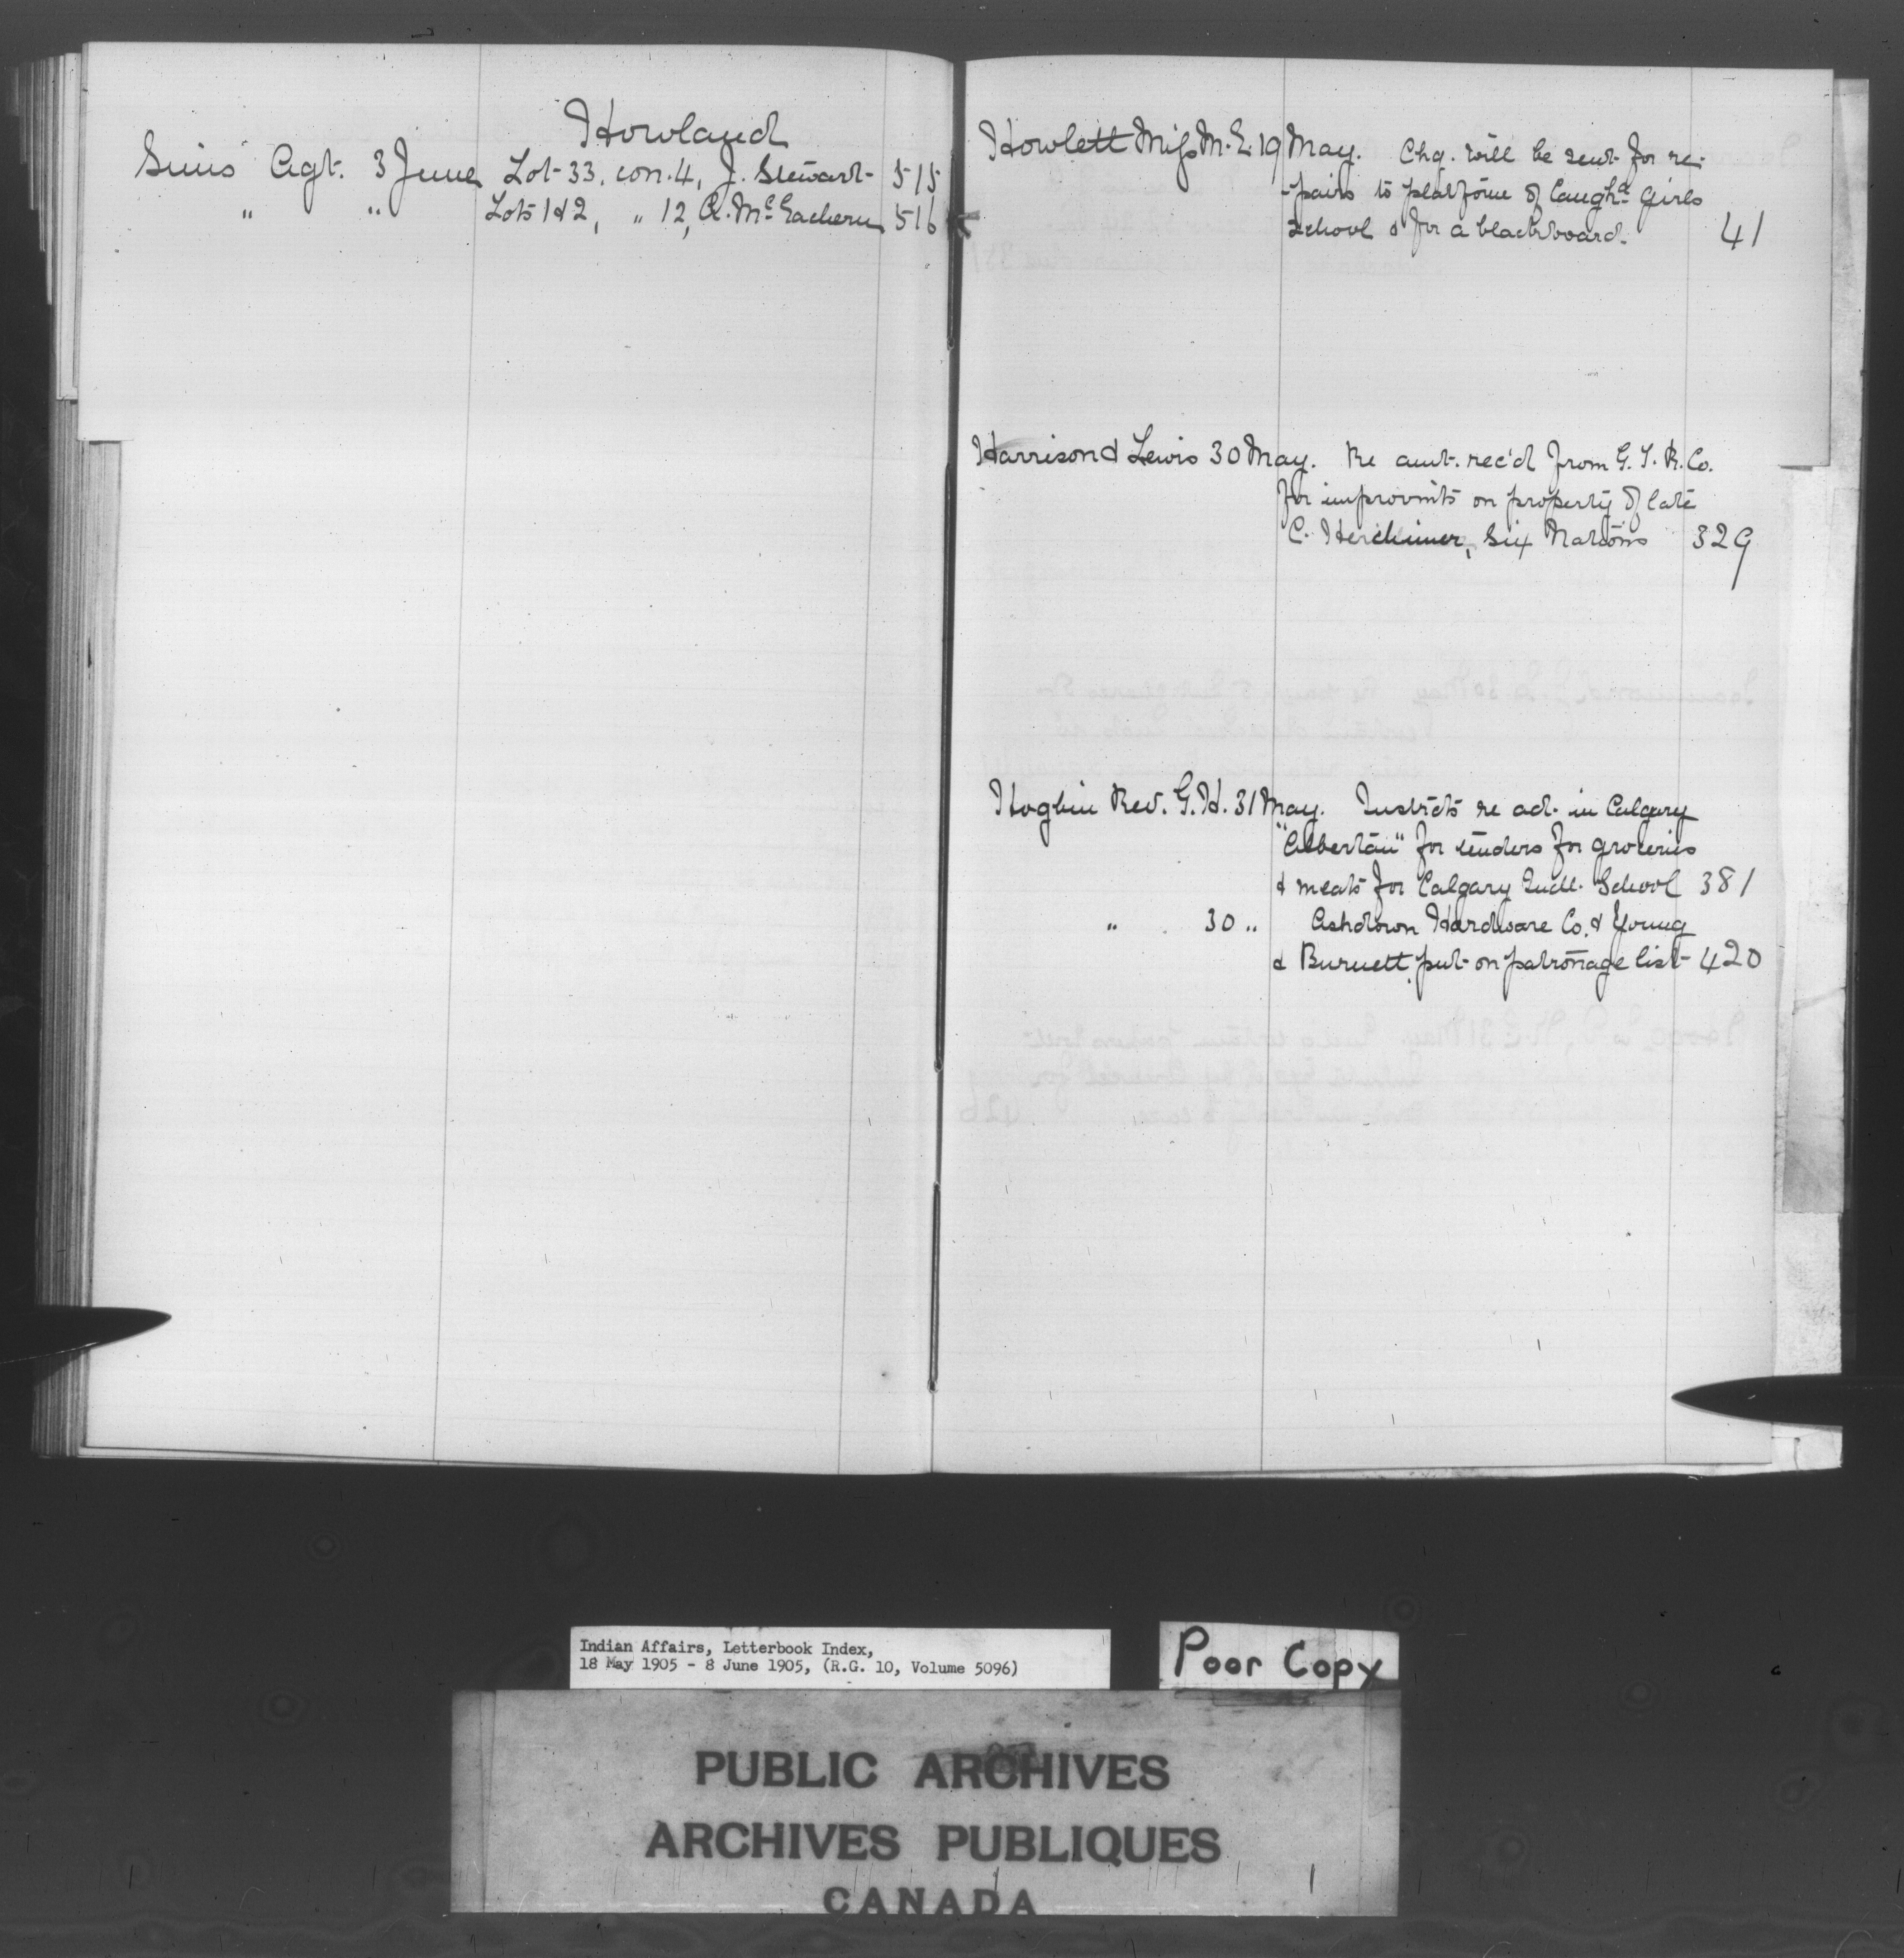 Howland
Sims Agt. 3 June Lot 33, con. 4, J. Stewart 515
" " Lots 1 & 2, " 12, A. McEachern 516
Howlett Miss M. E. 19 May. Chq. will be sent for re-
-pairs to platform of Caugha. Girls
School & for a blackboard. 41
Harrison & Lewis 30 May. Re amt. rec'd from G. T. R. Co.
for improvmts on property of late
C. Herchimer, Six Nations 329
Hogbin Rev. G. H. 31 May. Instrcts re adt. in Calgary
"Albertan" for tenders for groceries
& meats for Calgary Indl. School 381
" 30 " Ashdown Hardware Co. & Young
& Burnett put on patronage list 420
Indian Affairs, Letterbook Index,
18 May 1905 - 8 June 1905, (R.G. 10, Volume 5096)
Poor Copy
PUBLIC ARCHIVES
ARCHIVES PUBLIQUES
CANADA